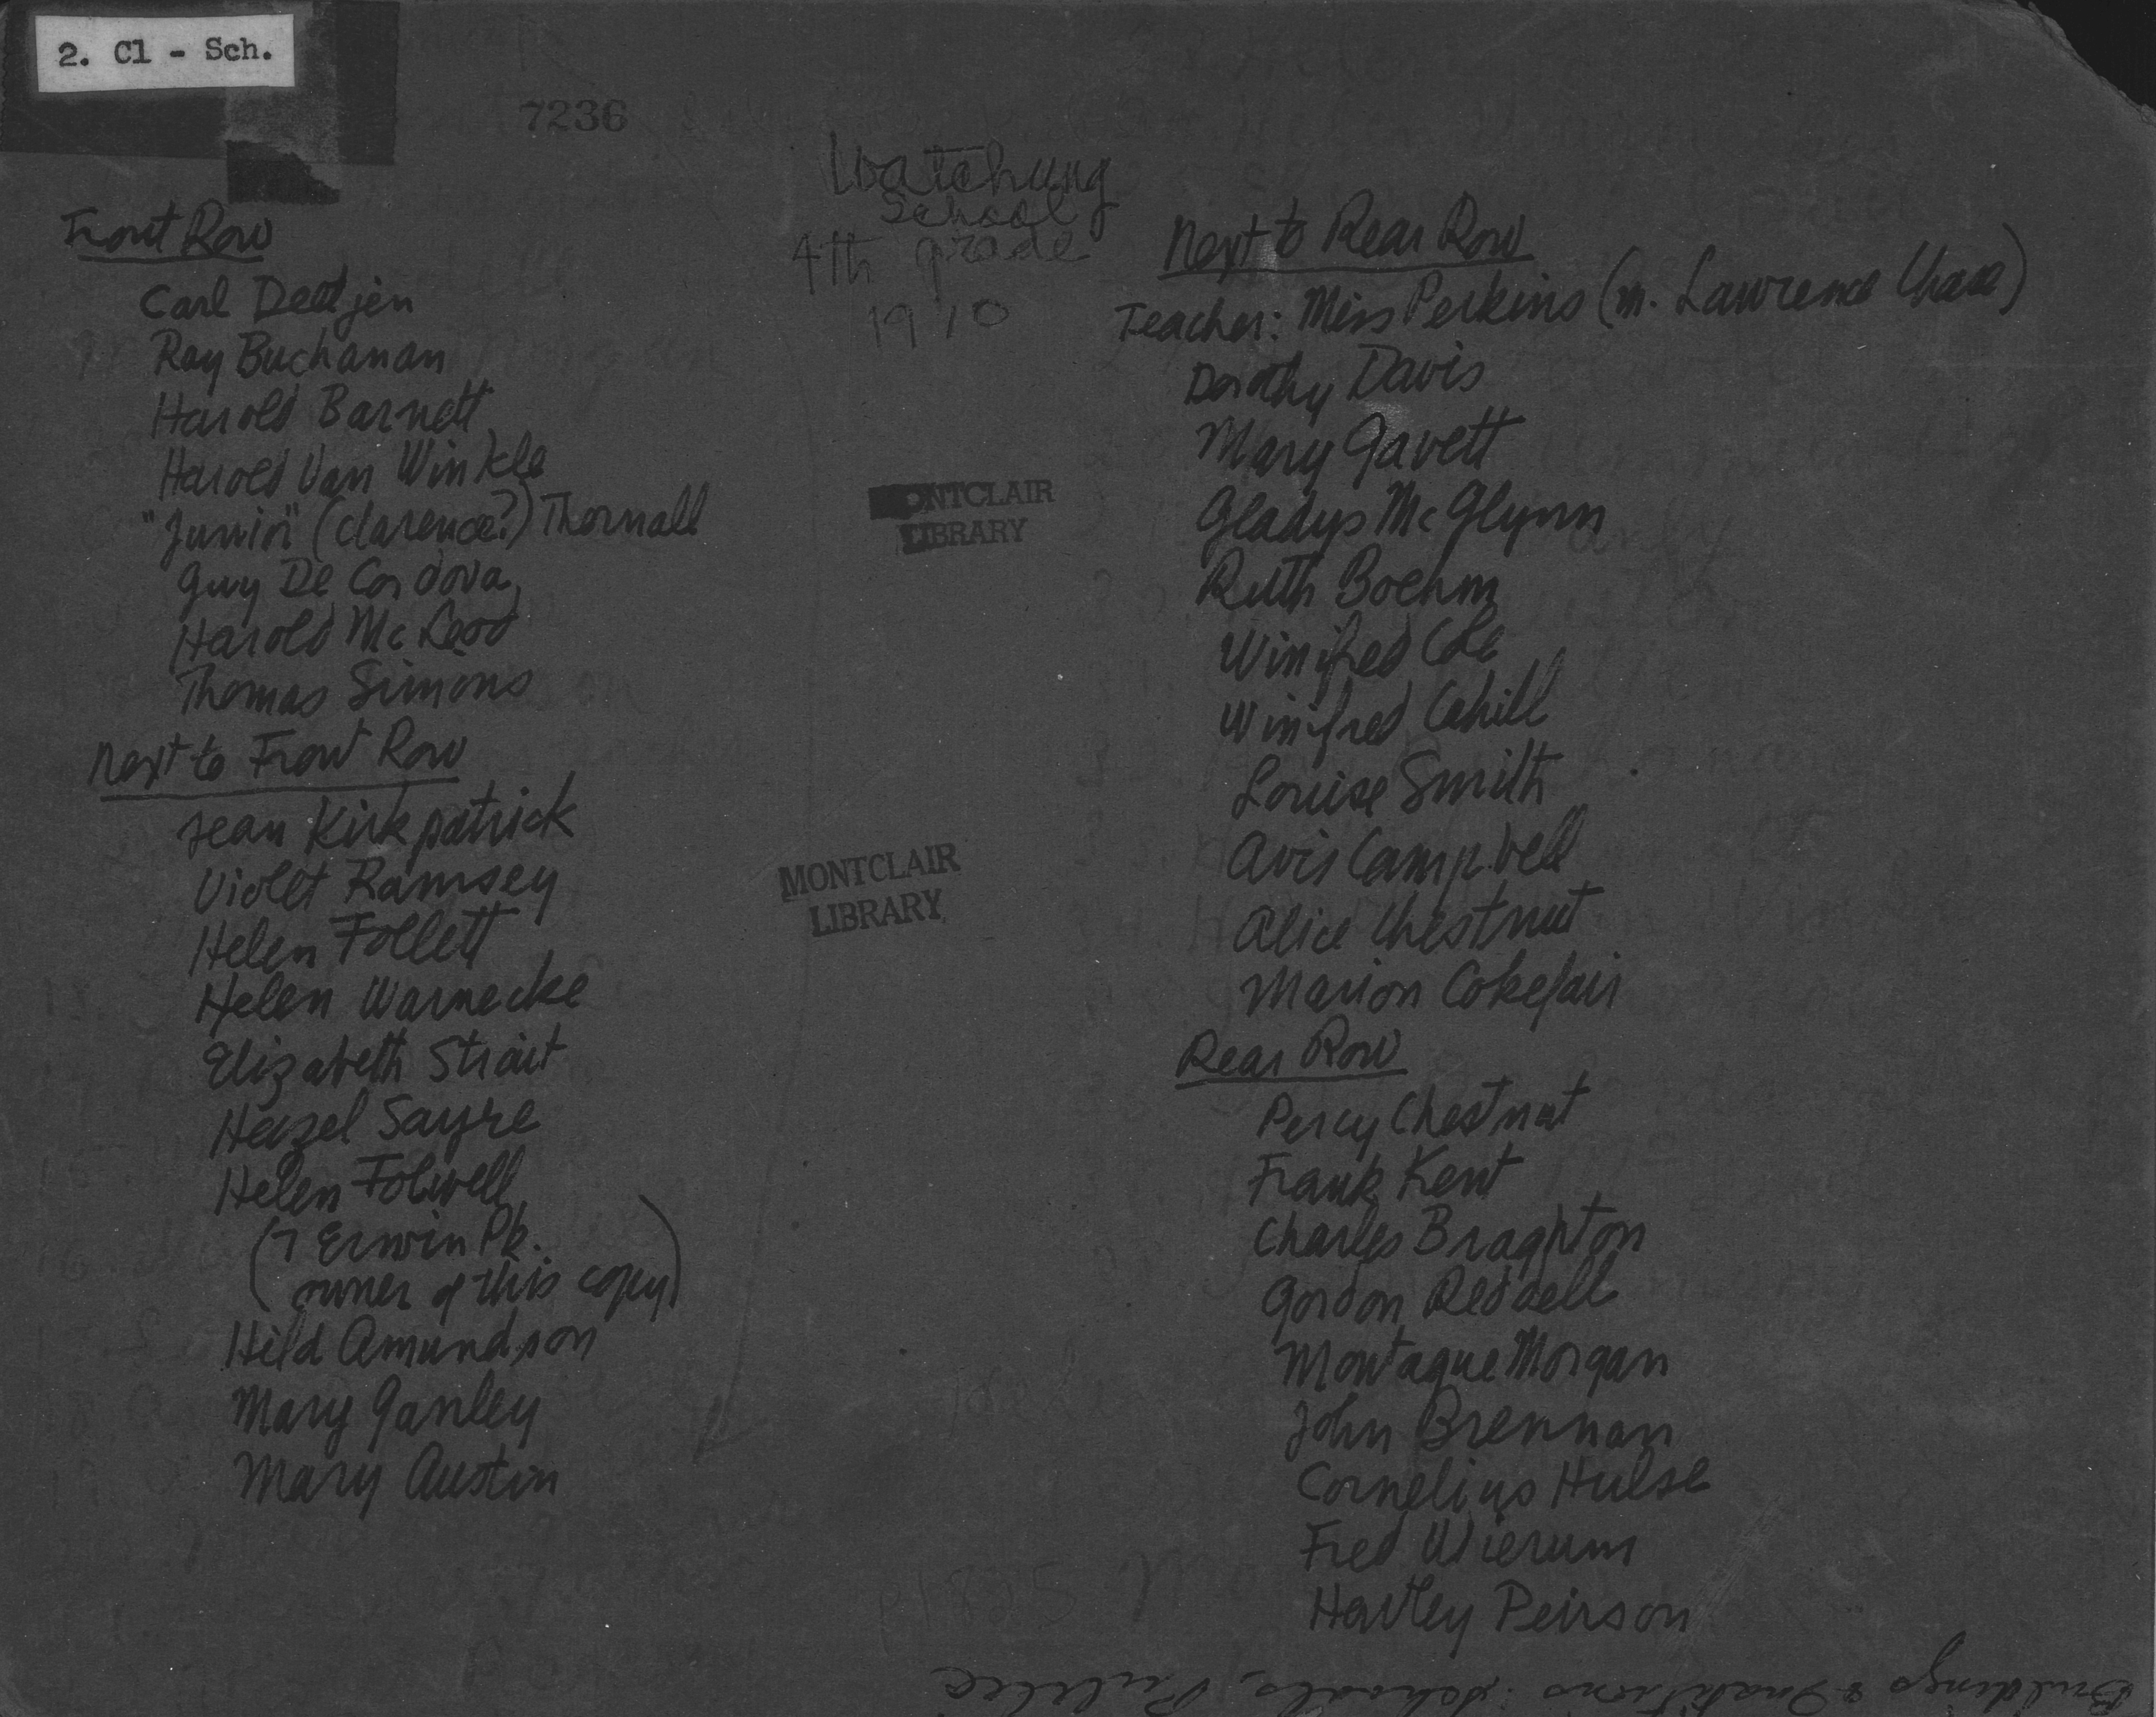 2. Cl - Sch.
7236
Watchung
School
4th grade
1910
Front Row
Carl Deetjen
Ray Buchanan
Harold Barnett
Harold Van Winkle
"Junior" (Clarence?) Thornall
Guy De Cordova
Harold McLeod
Thomas Simons
Next to Front Row
Jean Kirkpatrick
Violet Ramsey
Helen Follett
Helen Warnecke
Elizabeth Strait
Hazel Sayre
Helen Folwell
(7 Erwin Pk.
owner of this copy)
Hild Amundson
Mary Ganley
Mary Austin
MONTCLAIR
LIBRARY
MONTCLAIR
LIBRARY
Next to Rear Row
Teacher: Miss Perkins (m. Lawrence Chase)
Dorothy Davis
Mary Gavett
Gladys McGlynn
Ruth Boehm
Winifred Cole
Winifred Cahill
Louise Smith
Avis Campbell
Alice Chestnut
Marion Cokefair
Rear Row
Percy Chestnut
Frank Kent
Charles Braghton
Gordon Reddell
Montague Morgan
John Brennan
Cornelius Hulse
Fred Wierum
Hartley Peirson
Buildings & Institutions: Schools, Public